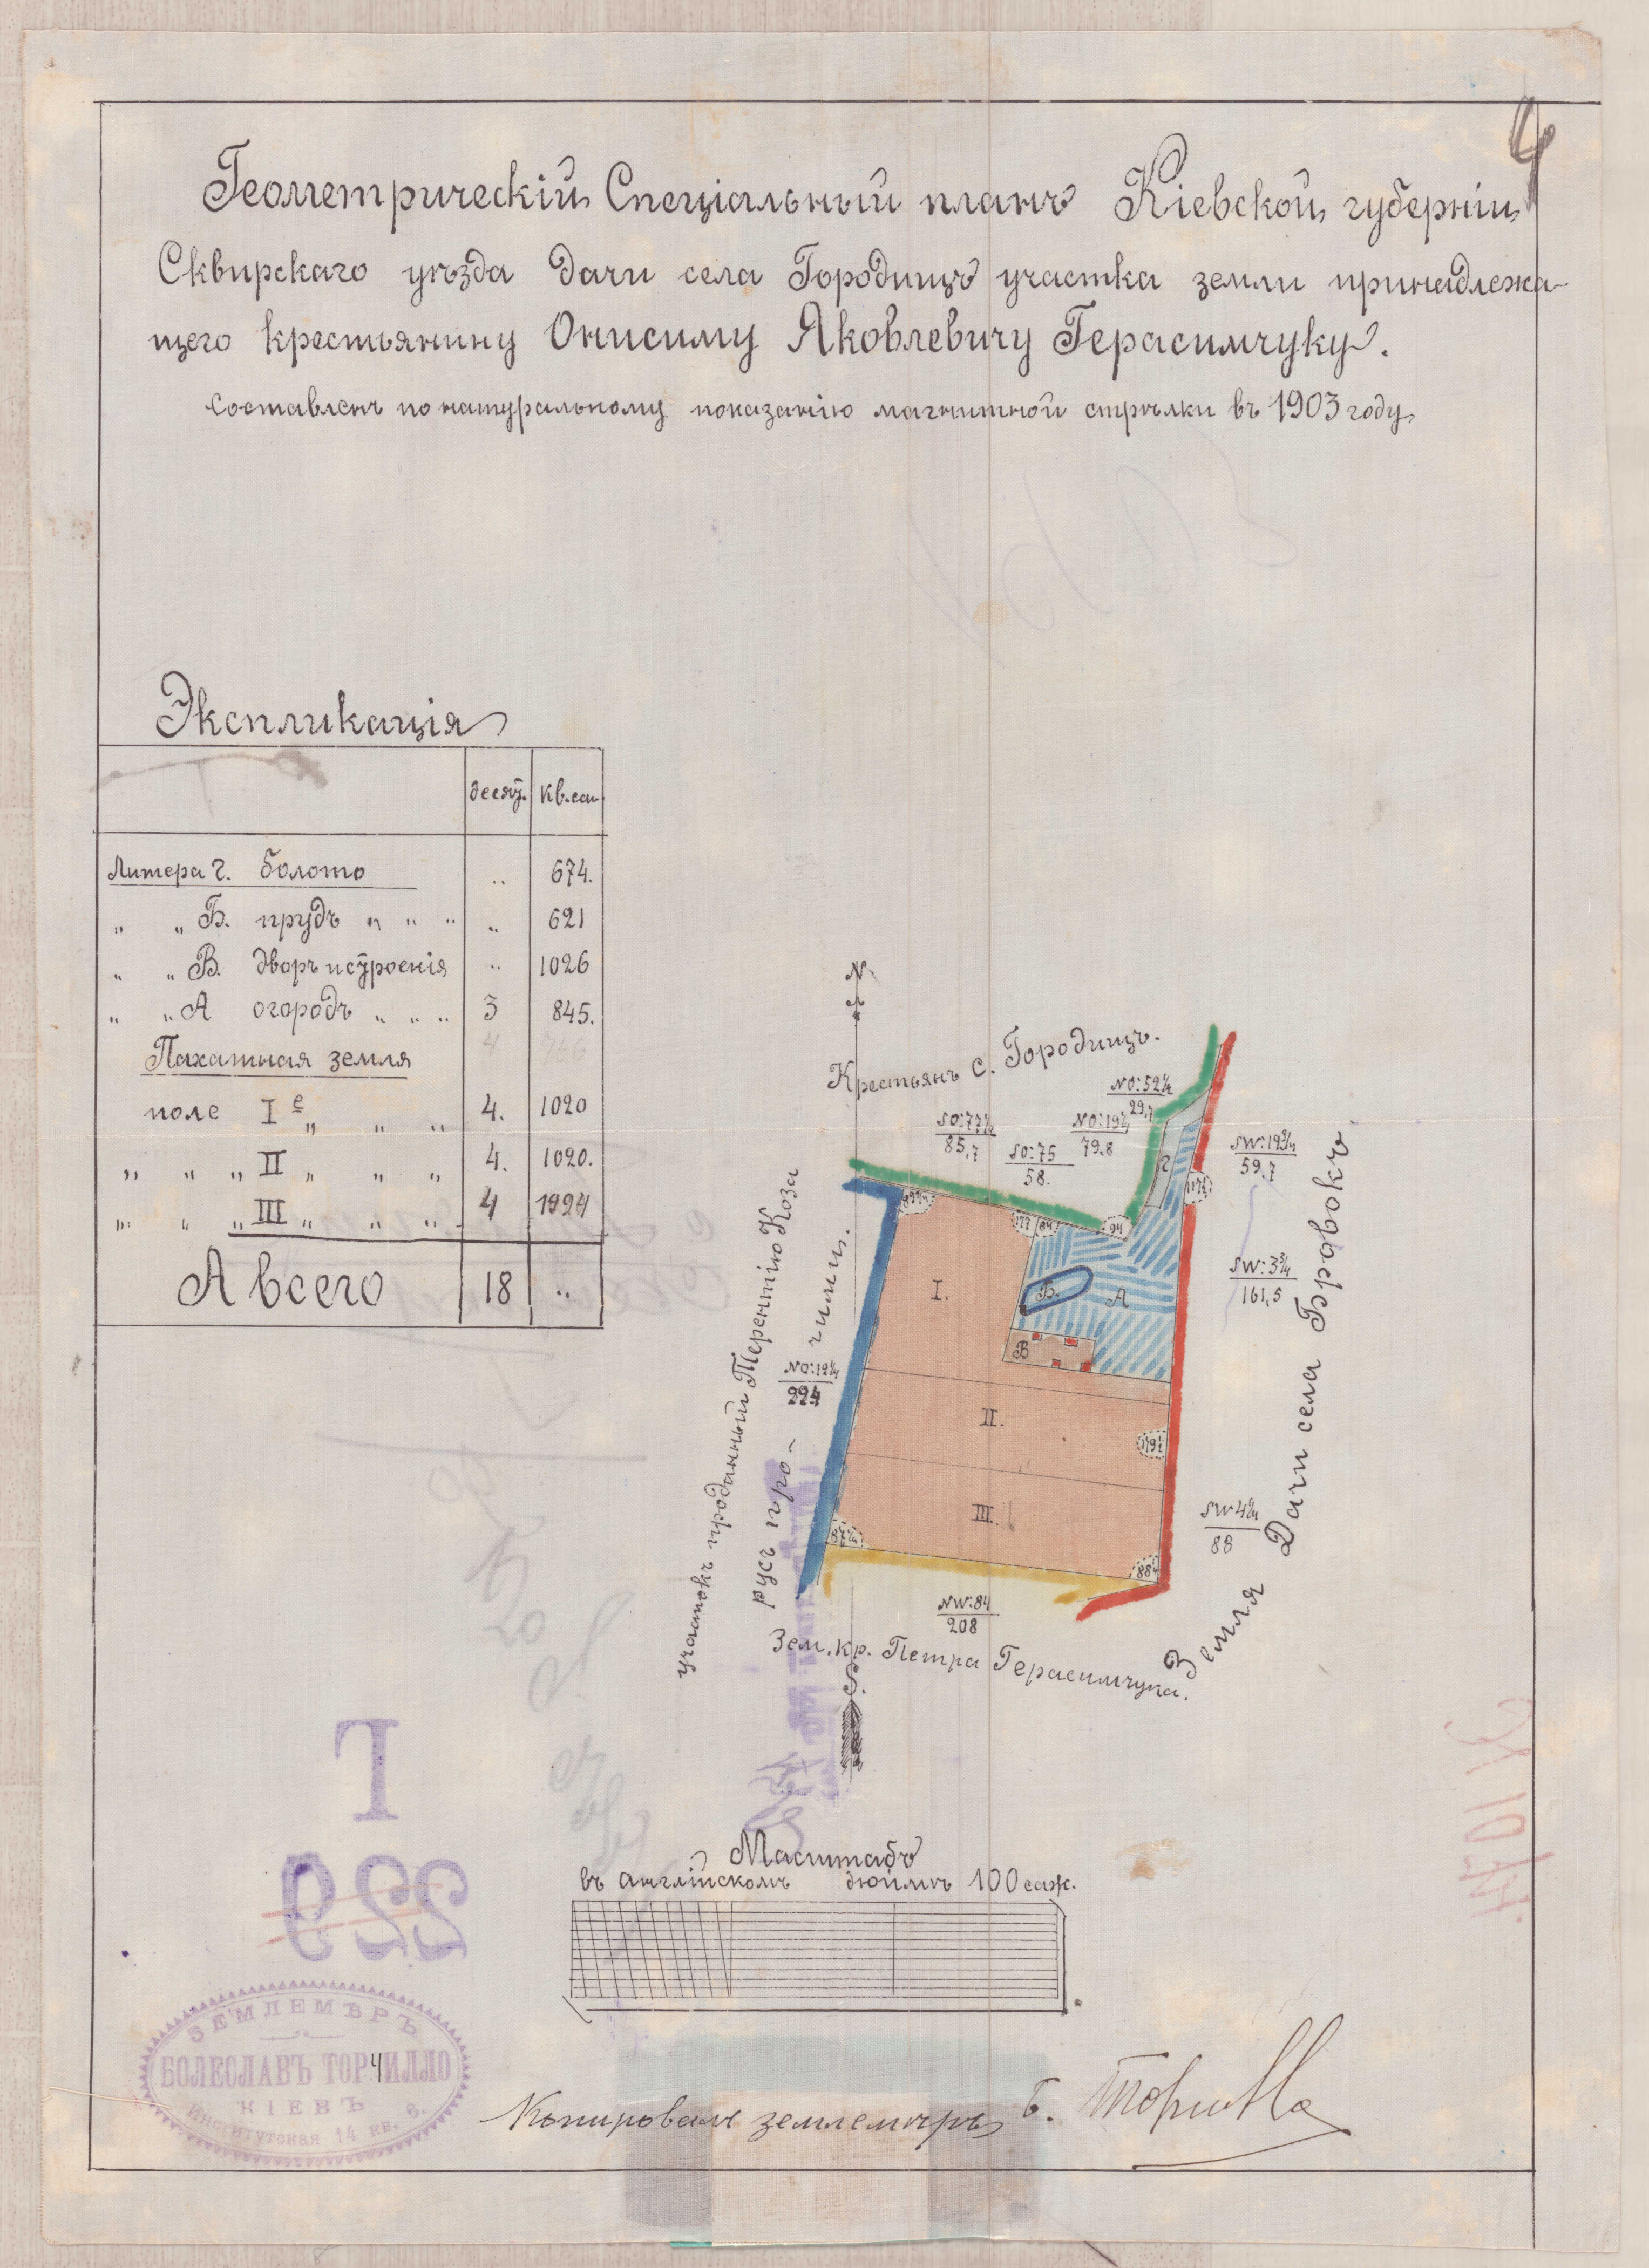 Геометрическій Спеціальный планъ Кіевской губерніи
Сквирскаго уѣзда дачи села Городищъ участка земли принадлежа-
щего крестьянину Онисиму Яковлевичу Герасимчуку.
Составленъ по натуральному показанію магнитной стрѣлки въ 1903 году.
Экспликація
десят. кв. саж.
Литера Г. болото „ 674.
„ „ Б. прудъ „ „ „ „ 621
„ „ В. дворъ и строенія „ 1026
„ „ А огородъ „ „ „ 3 845.
Пахатная земля
поле I е „ „ „ 4. 1020
„ „ „ II „ „ „ 4. 1020.
„ „ „ III „ „ „ 4 1994
А всего 18 „
N
Крестьянъ с. Городищъ.
NO:52¼
29,7
SO:77½
85,7
SO:75
58.
NO:19¼
79.8
SW:19¾
59,7
SW:3¾
161,5
SW 4¾
88
NW:84
208
NO:19¼
224
I.
II.
III.
А
Б.
В
Г
177
84
94
участокъ проданный Терентію Коза
русъ про-
чимъ.
Земля Дачи села Бровокъ
Зем. кр. Петра Герасимчука.
S.
Масштабъ
въ англійскомъ дюймѣ 100 саж.
229
ЗЕМЛЕМѢРЪ
БОЛЕСЛАВЪ ТОРЧИЛЛО
КІЕВЪ
Институтская 14 кв. 6.
Копировалъ землемѣръ Б. Торчилло